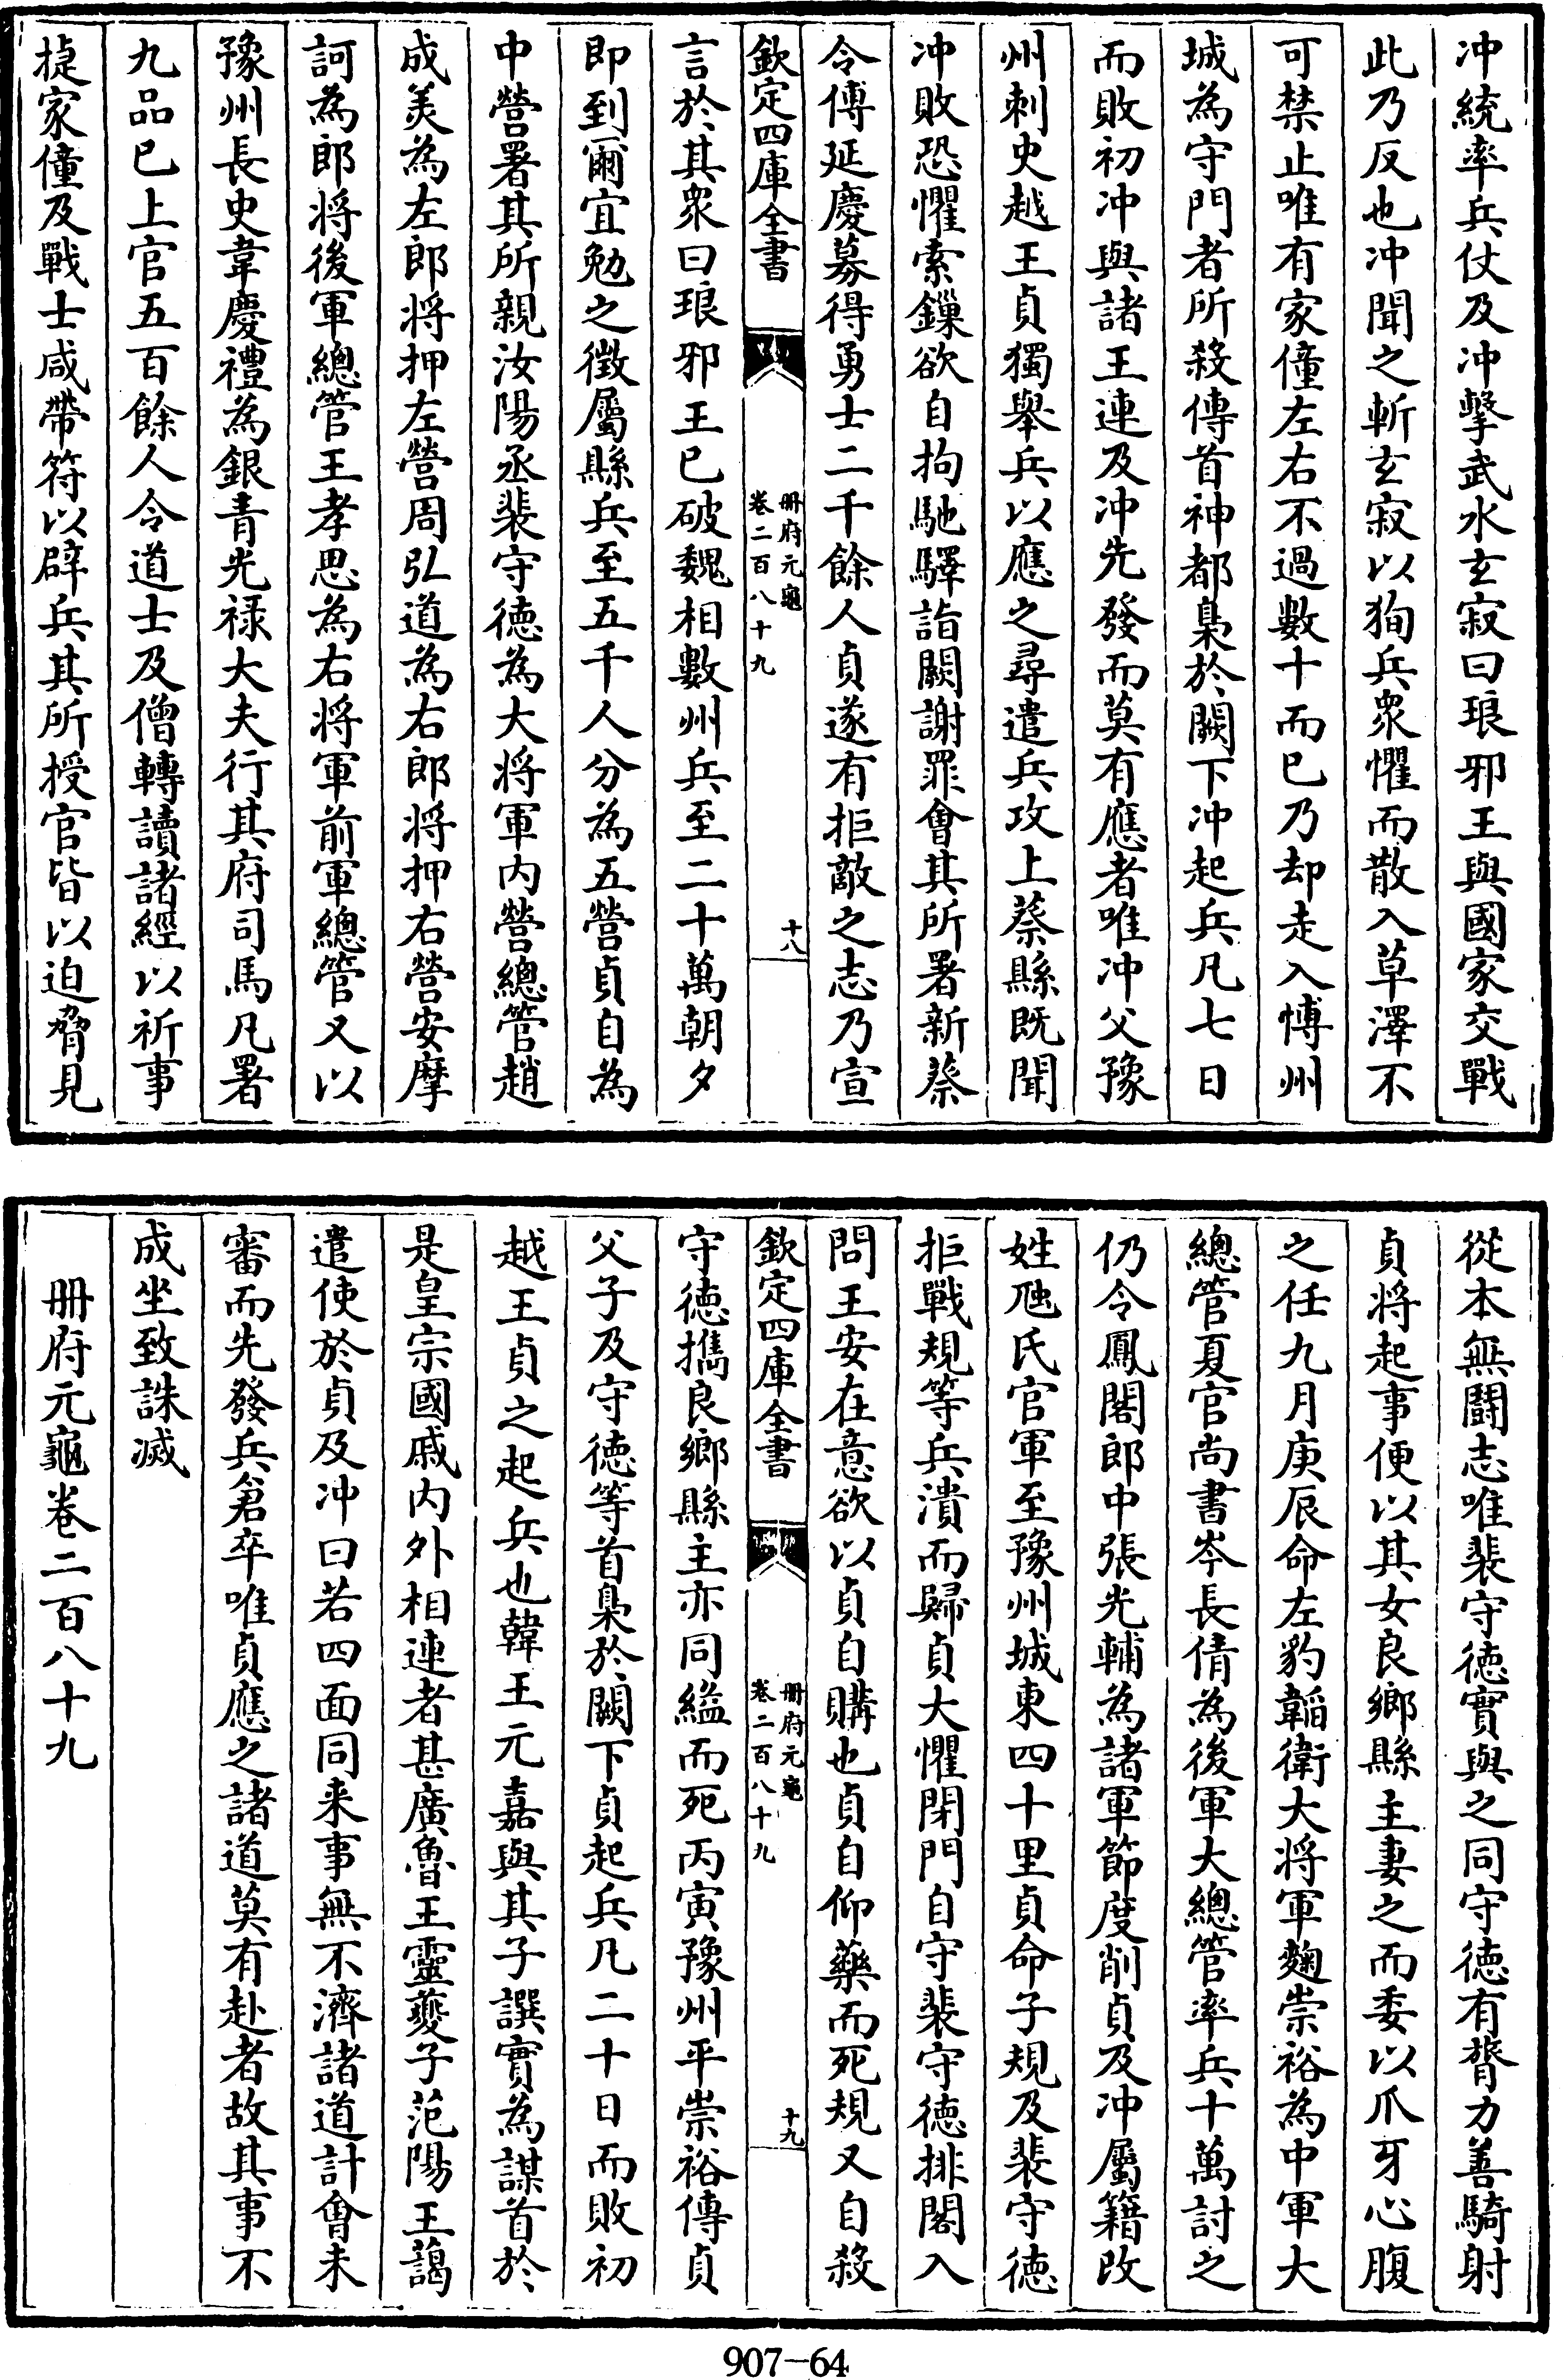 冲統率兵仗及冲擊武水玄寂曰琅邪王與國家交戰
此乃反也冲聞之斬玄寂以狥兵衆懼而散入草澤不
可禁止唯有家僮左右不過數十而已乃却走入博州
城為守門者所殺傳首神都梟於闕下冲起兵凡七日
而敗初冲與諸王連及冲先發而莫有應者唯冲父豫
州刺史越王貞獨舉兵以應之尋遣兵攻上蔡縣既聞
冲敗恐懼索鏁欲自拘馳驛詣闕謝罪會其所署新蔡
令傅延慶募得勇士二千餘人貞遂有拒敵之志乃宣
欽定四庫全書
冊府元龜
卷二百八十九
十八
言於其衆曰琅邪王已破魏相數州兵至二十萬朝夕
即到爾宜勉之徵屬縣兵至五千人分為五營貞自為
中營署其所親汝陽丞裴守德為大將軍内營總管趙
成美為左郎將押左營周弘道為右郎將押右營安摩
訶為郎將後軍總管王孝思為右將軍前軍總管又以
豫州長史韋慶禮為銀青光禄大夫行其府司馬凡署
九品已上官五百餘人令道士及僧轉讀諸經以祈事
㨗家僮及戰士咸帶符以辟兵其所授官皆以迫脅見
從本無鬭志唯裴守德實與之同守德有膂力善騎射
貞將起事便以其女良鄉縣主妻之而委以爪牙心腹
之任九月庚辰命左豹韜衛大將軍麴崇裕為中軍大
總管夏官尚書岑長倩為後軍大總管率兵十萬討之
仍令鳳閣郎中張光輔為諸軍節度削貞及冲屬籍改
姓虺氏官軍至豫州城東四十里貞命子規及裴守德
拒戰規等兵潰而歸貞大懼閉門自守裴守德排閤入
問王安在意欲以貞自購也貞自仰藥而死規又自殺
欽定四庫全書
冊府元龜
卷二百八十九
十九
守德攜良鄉縣主亦同縊而死丙寅豫州平崇裕傳貞
父子及守德等首梟於闕下貞起兵凡二十日而敗初
越王貞之起兵也韓王元嘉與其子譔實為謀首於
是皇宗國戚内外相連者甚廣魯王靈夔子范陽王藹
遣使於貞及冲曰若四面同来事無不濟諸道計會未
審而先發兵倉卒唯貞應之諸道莫有赴者故其事不
成坐致誅滅
冊府元龜卷二百八十九
907-64